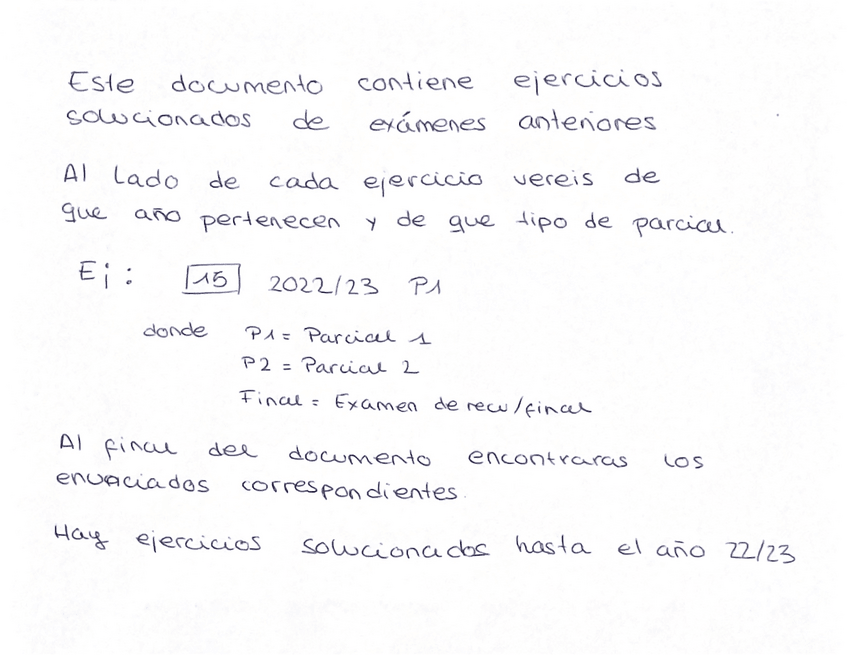 Este documento contiene ejercicios
solucionados de exámenes anteriores
Al lado de cada ejercicio vereis de
que año pertenecen y de que tipo de parcial.
Ej: 15 2022/23 P1
donde P1 = Parcial 1
P2 = Parcial 2
Final = Examen de recu/final
Al final del documento encontraras los
enunciados correspondientes.
Hay ejercicios solucionados hasta el año 22/23